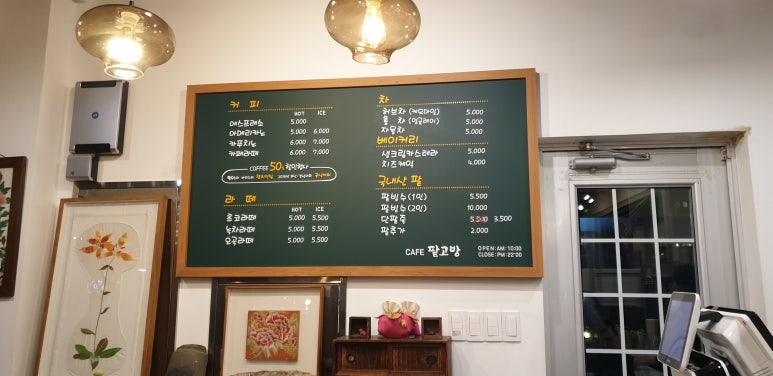 커 피
HOT ICE
에스프레소 5.000
아메리카노 5.000 6.000
카푸치노 6.000 7.000
카페라떼 6.000 7.000
COFFEE 50% 할인합니다
라 떼
HOT ICE
초코라떼 5.000 5.500
녹차라떼 5.000 5.500
오곡라떼 5.000 5.500
차
허브차 (캐모마일) 5.000
홍 차 (얼그레이) 5.000
자몽차 5.000
베이커리
생크림카스테라 5.000
치즈케익 4.000
국내산 팥
팥빙수 (1인) 5.500
팥빙수 (2인) 10.000
단팥죽 3.500
팥추가 2.000
CAFE 팥고방
OPEN: AM: 10:00
CLOSE: PM: 22:00